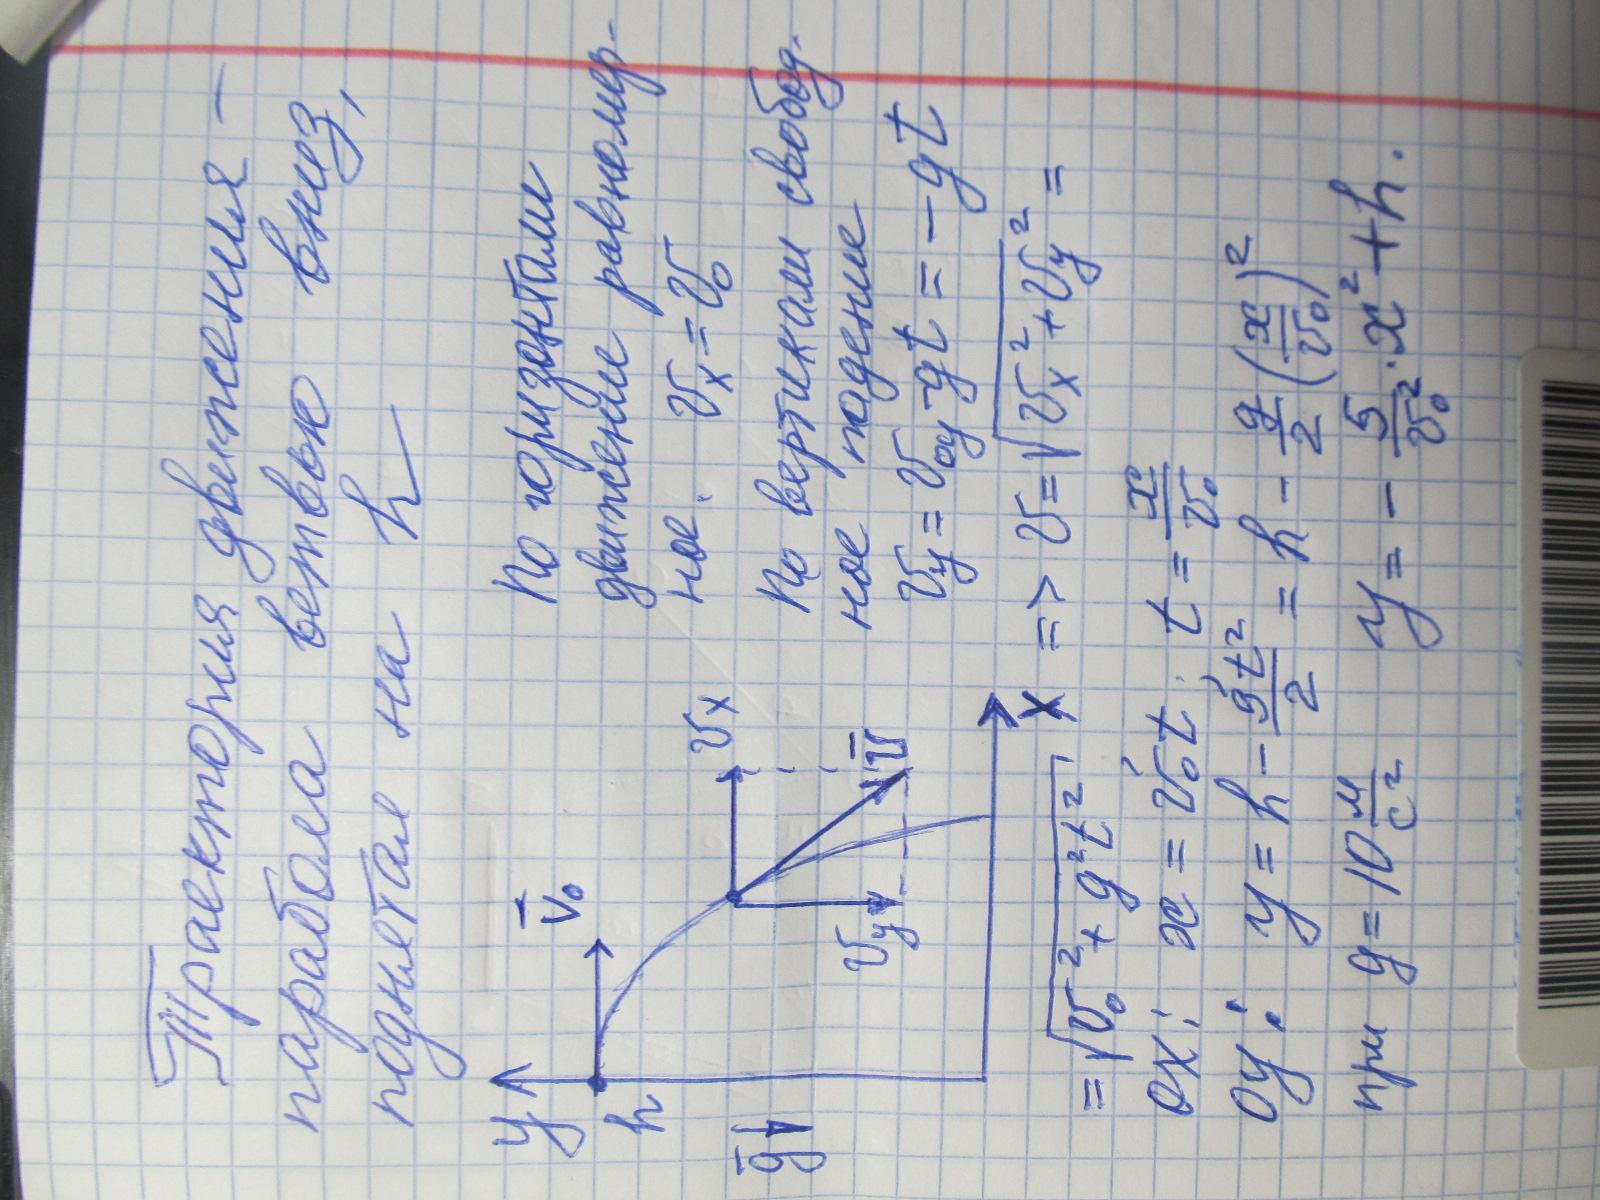 Траектория движения –
парабола ветвью вниз,
поднятая на h
y
h
v̄₀
ḡ
vₓ
v_y
v̄
x
По горизонтали
движение равномер-
ное. vₓ = v₀
По вертикали свобод-
ное падение
v_y = v₀y - gt = - gt
=> v = √(vₓ² + v_y²) =
= √(v₀² + g²t²)
ox: x = v₀t; t = x/v₀
oy: y = h - gt²/2 = h - g/2 (x/v₀)²
при g = 10 м/с² y = - 5/v₀² · x² + h.